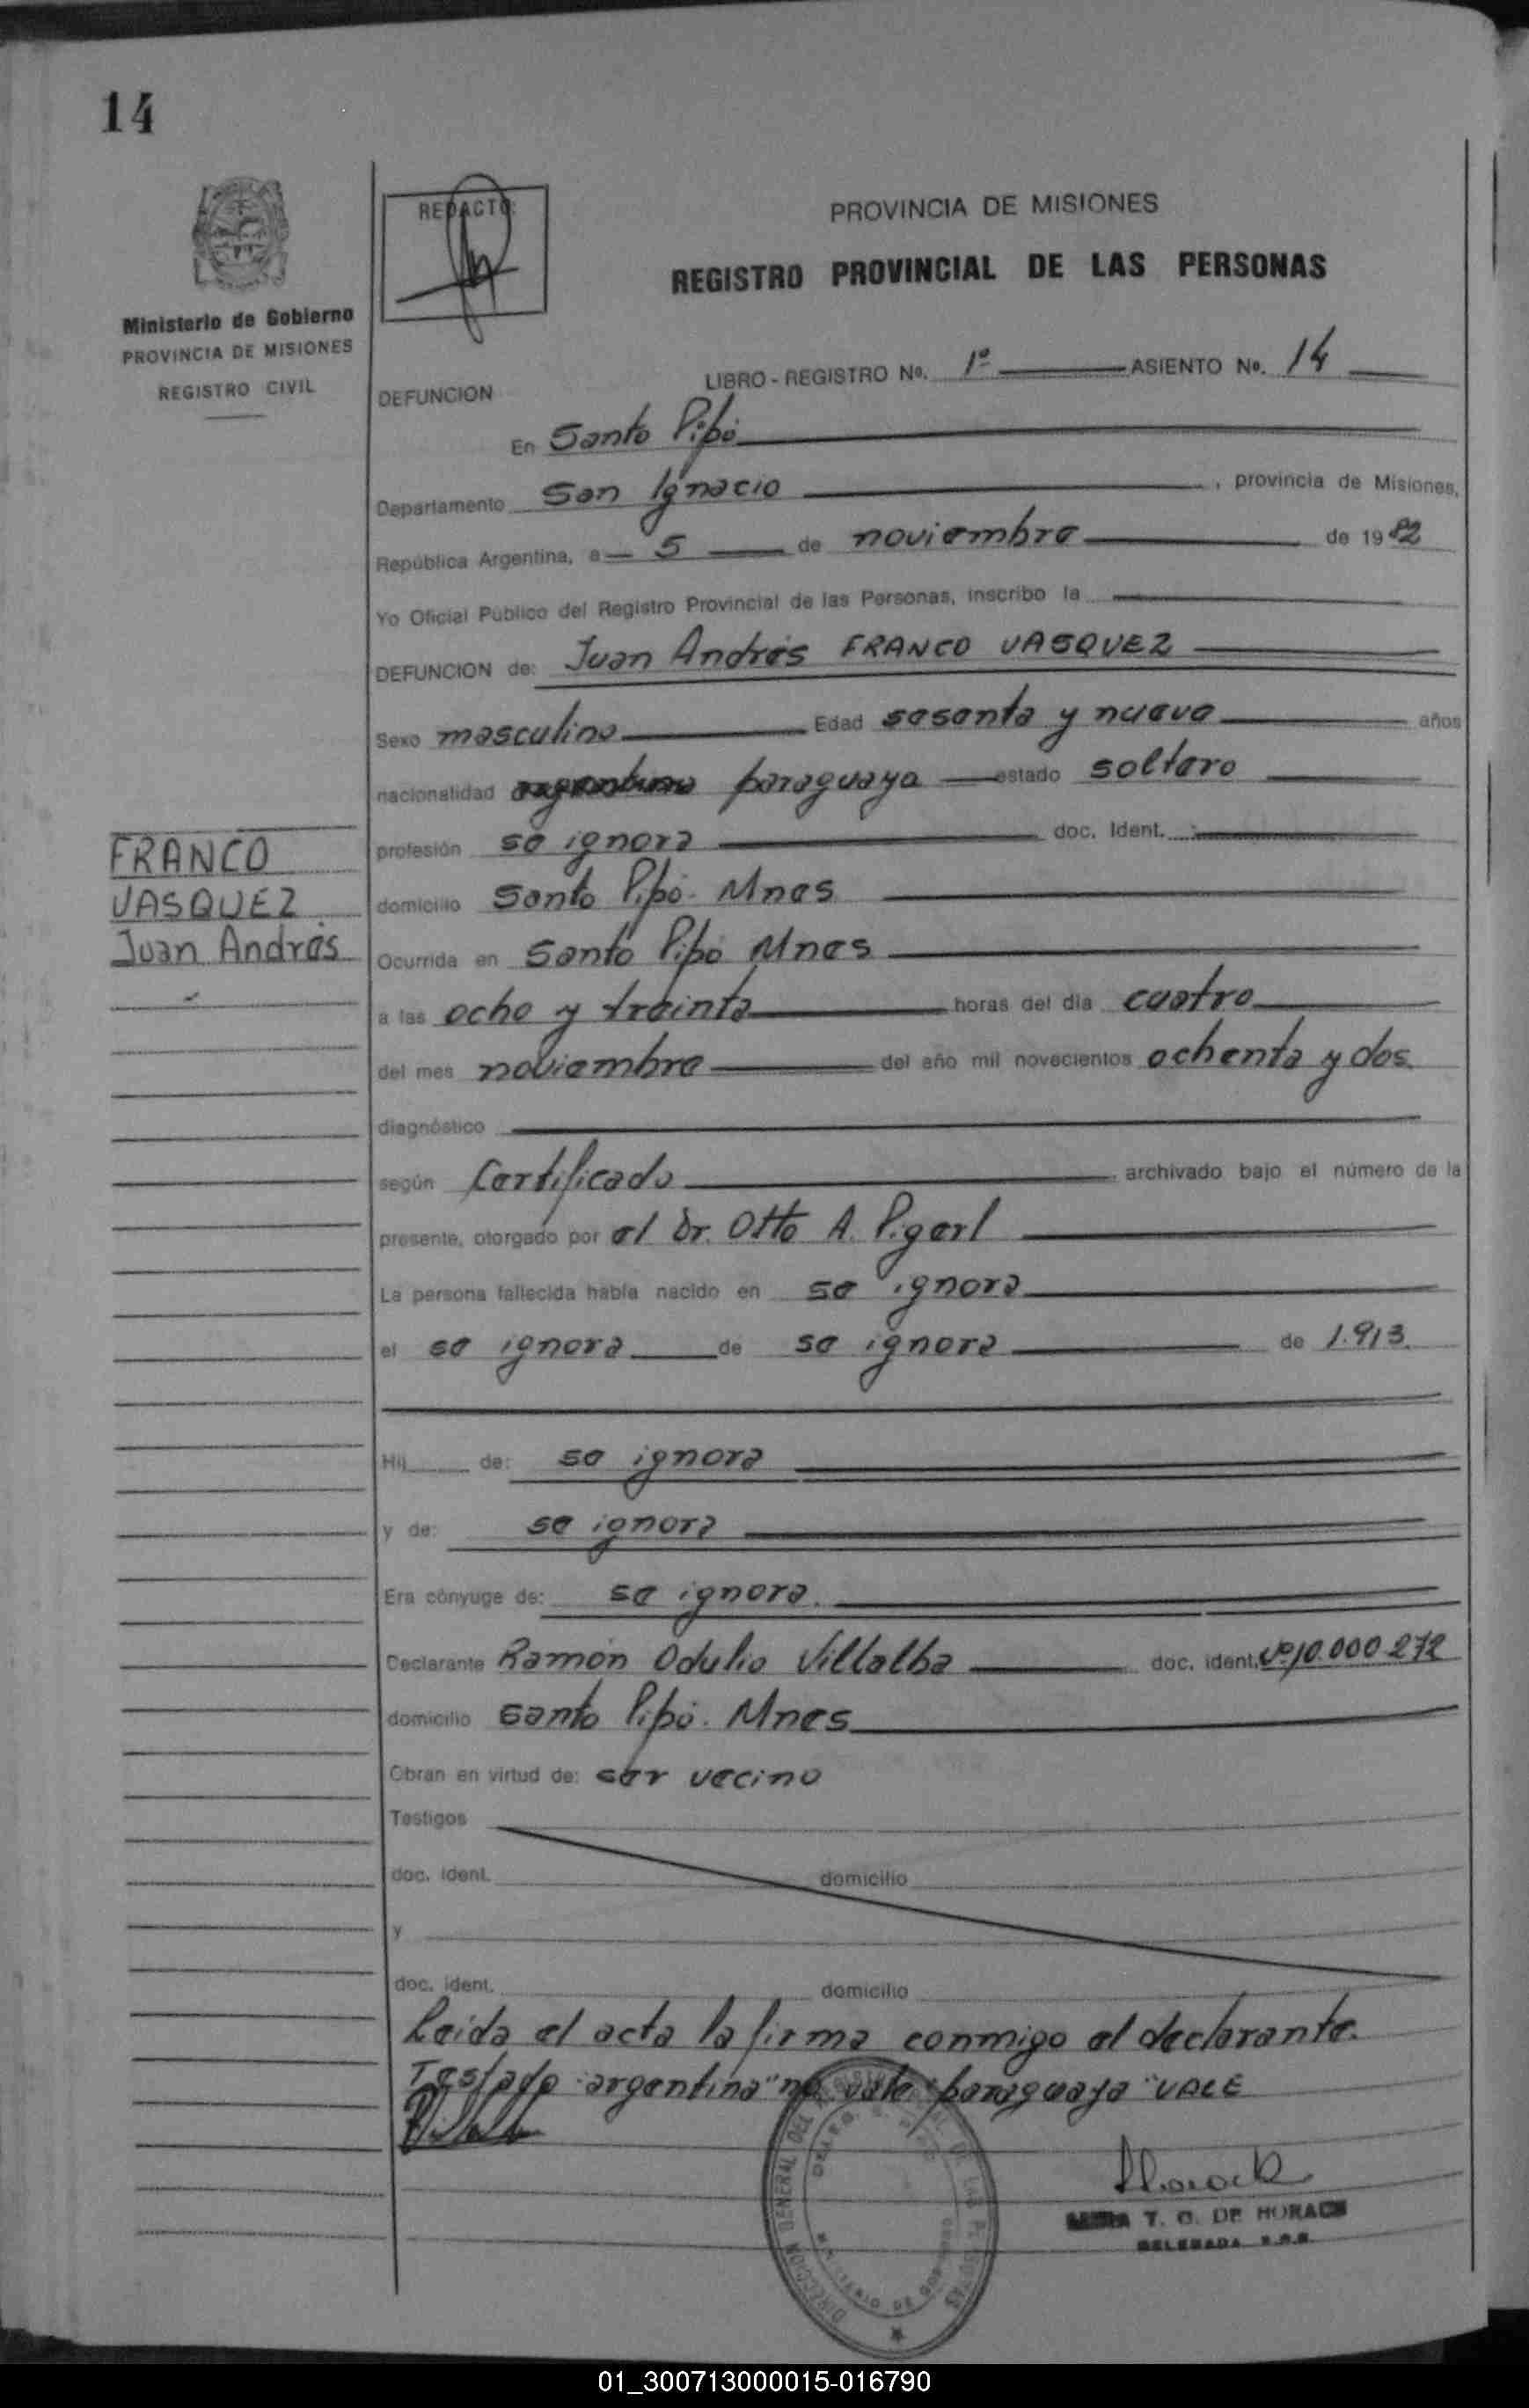 14
Ministerio de Gobierno
PROVINCIA DE MISIONES
REGISTRO CIVIL
REDACTO:
PROVINCIA DE MISIONES
REGISTRO PROVINCIAL DE LAS PERSONAS
LIBRO - REGISTRO Nº. 1º ASIENTO Nº. 14
DEFUNCION
En Santo Pipó
Departamento San Ignacio, provincia de Misiones,
República Argentina, a 5 de noviembre de 1982
Yo Oficial Público del Registro Provincial de las Personas, inscribo la
DEFUNCION de: Juan Andrés FRANCO VASQUEZ
Sexo masculino Edad sesenta y nueve años
nacionalidad argentina paraguaya estado soltero
profesión se ignora doc. Ident.
FRANCO
VASQUEZ
Juan Andrés
domicilio Santo Pipó. Mnes
Ocurrida en Santo Pipó Mnes
a las ocho y treinta horas del día cuatro
del mes noviembre del año mil novecientos ochenta y dos
diagnóstico
según Certificado, archivado bajo el número de la
presente, otorgado por el Dr. Otto A. Pigerl
La persona fallecida había nacido en se ignora
el se ignora de se ignora de 1.913.
Hij de: se ignora
y de: se ignora
Era cónyuge de: se ignora.
Declarante Ramón Odulio Villalba doc. ident. Nº10.000.272
domicilio Santo Pipó. Mnes
Obran en virtud de: ser vecino
Testigos
doc. ident. domicilio
y
doc. ident. domicilio
Leida el acta la firma conmigo el declarante.
Testado "argentina" no vale "paraguaya" VALE
DIRECCION GENERAL DEL REGISTRO PROVINCIAL DE LAS PERSONAS
T. G. DE HORACK
DELEGADA
01_300713000015-016790